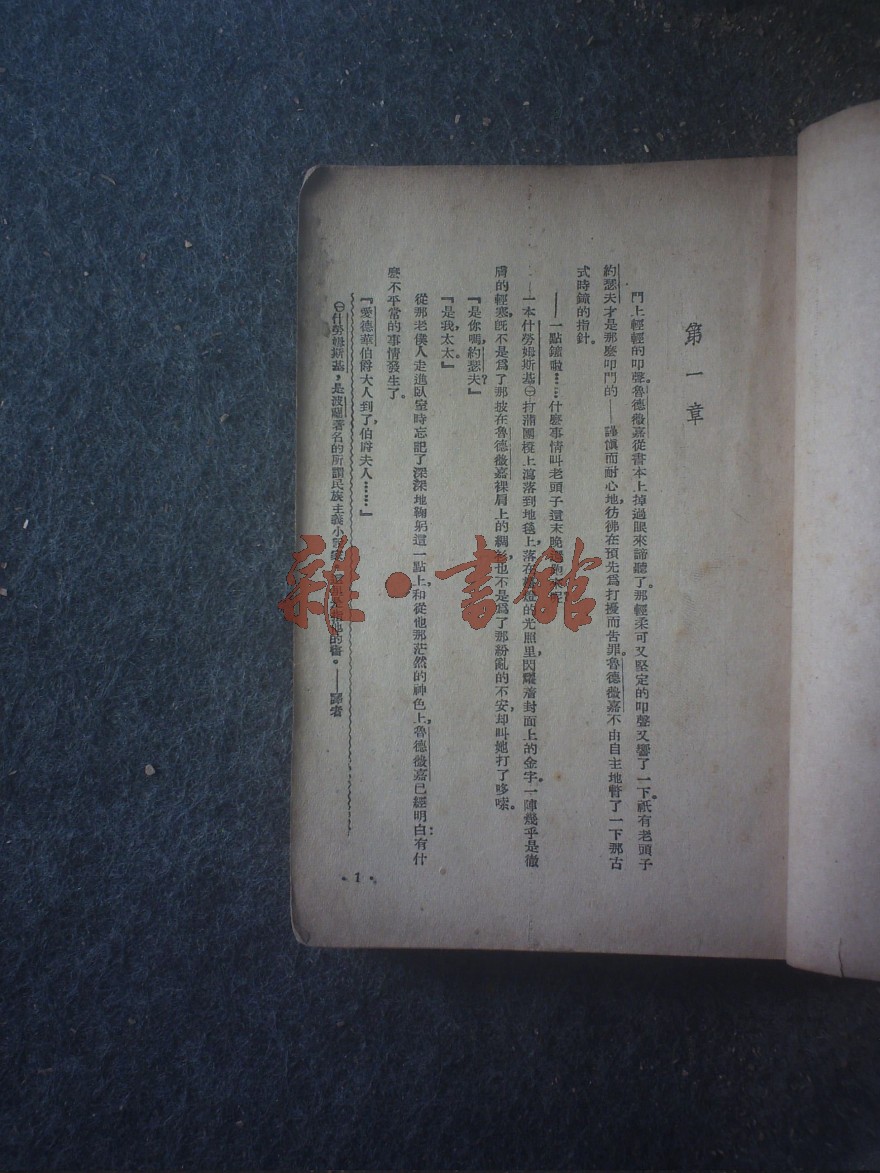 第一章
門上輕輕的叩聲。魯德薇嘉從書本上掉過眼來諦聽了。那輕柔可又堅定的叩聲又響了一下。祇有老頭子
約瑟夫才是那麼叩門的——謹愼而耐心地，彷彿在預先爲打擾而吿罪。魯德薇嘉不由自主地瞥了一下那古
式時鐘的指針。
——一點鐘啦……什麼事情叫老頭子這末晚
一本什勞姆斯基㊀打蒲團櫈上瀉落到地毯上，落在的光照里，閃耀着封面上的金字。一陣幾乎是徹
膚的輕寒，旣不是爲了那披在魯德薇嘉裸肩上的綢衫，也不是爲了那紛亂的不安，却叫她打了哆嗦。
『是你嗎，約瑟夫？』
『是我，太太。』
從那老僕人走進臥室時忘記了深深地鞠躬這一點上，和從他那茫然的神色上，魯德薇嘉已經明白有什
麼不平常的事情發生了。
『愛德華伯爵大人到了，伯爵夫人……』
㊀什勞姆斯基，是波蘭著名的所謂民族主義小說家的書。——譯者
•1•
雜·書館